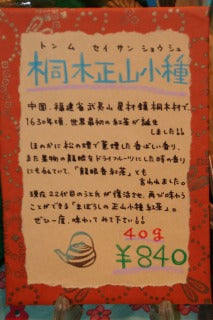 トンム セイサンショウシュ
桐木正山小種
中国、福建省武夷山星村鎮桐木村で、
1630年頃、世界最初の紅茶が誕生
しました!!
ほのかに松の煙で薫煙した香ばしい香り、
また果物の龍眼をドライフルーツにした時の香り
にもにていて、「龍眼香紅茶」とも
言われました。
現在22代目の江氏が復活させ、再び味わう
ことができる「まぼろしの正山小種紅茶」。
ぜひ一度、味わってみて下さい!!
40g
¥840